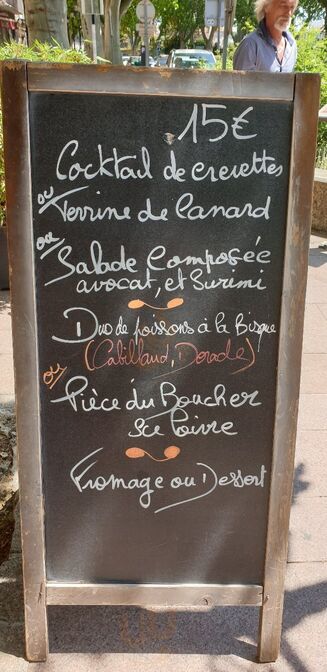 15€
Cocktail de crevettes
ou
Terrine de Canard
ou
Salade Composée
avocat, et Surimi
Duo de poissons à la Bisque
(Cabillaud, Dorade)
ou
Pièce du Boucher
Sce Poivre
Fromage ou Dessert